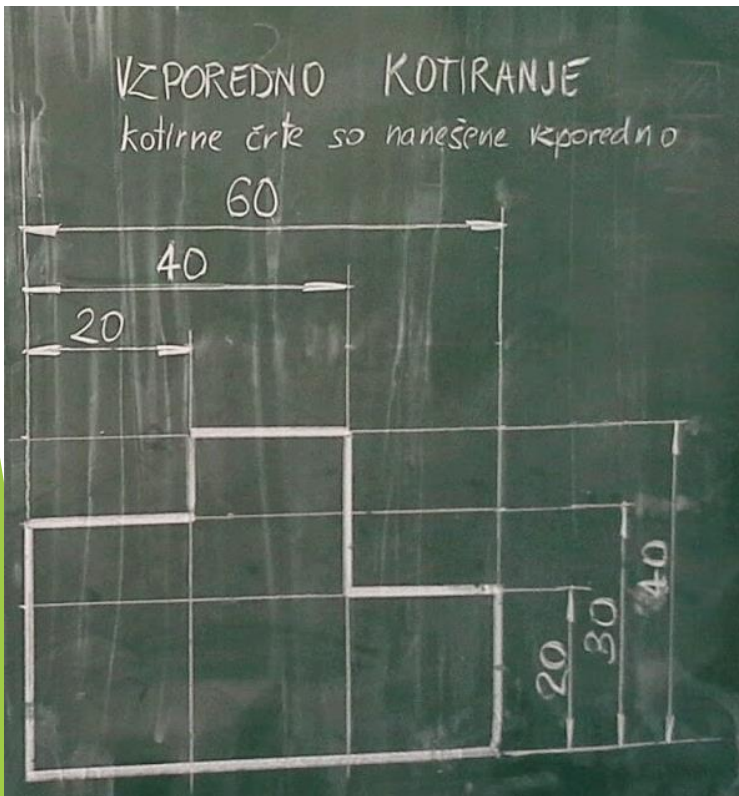 VZPOREDNO KOTIRANJE
kotirne črte so nanešene vzporedno
60
40
20
40
30
20